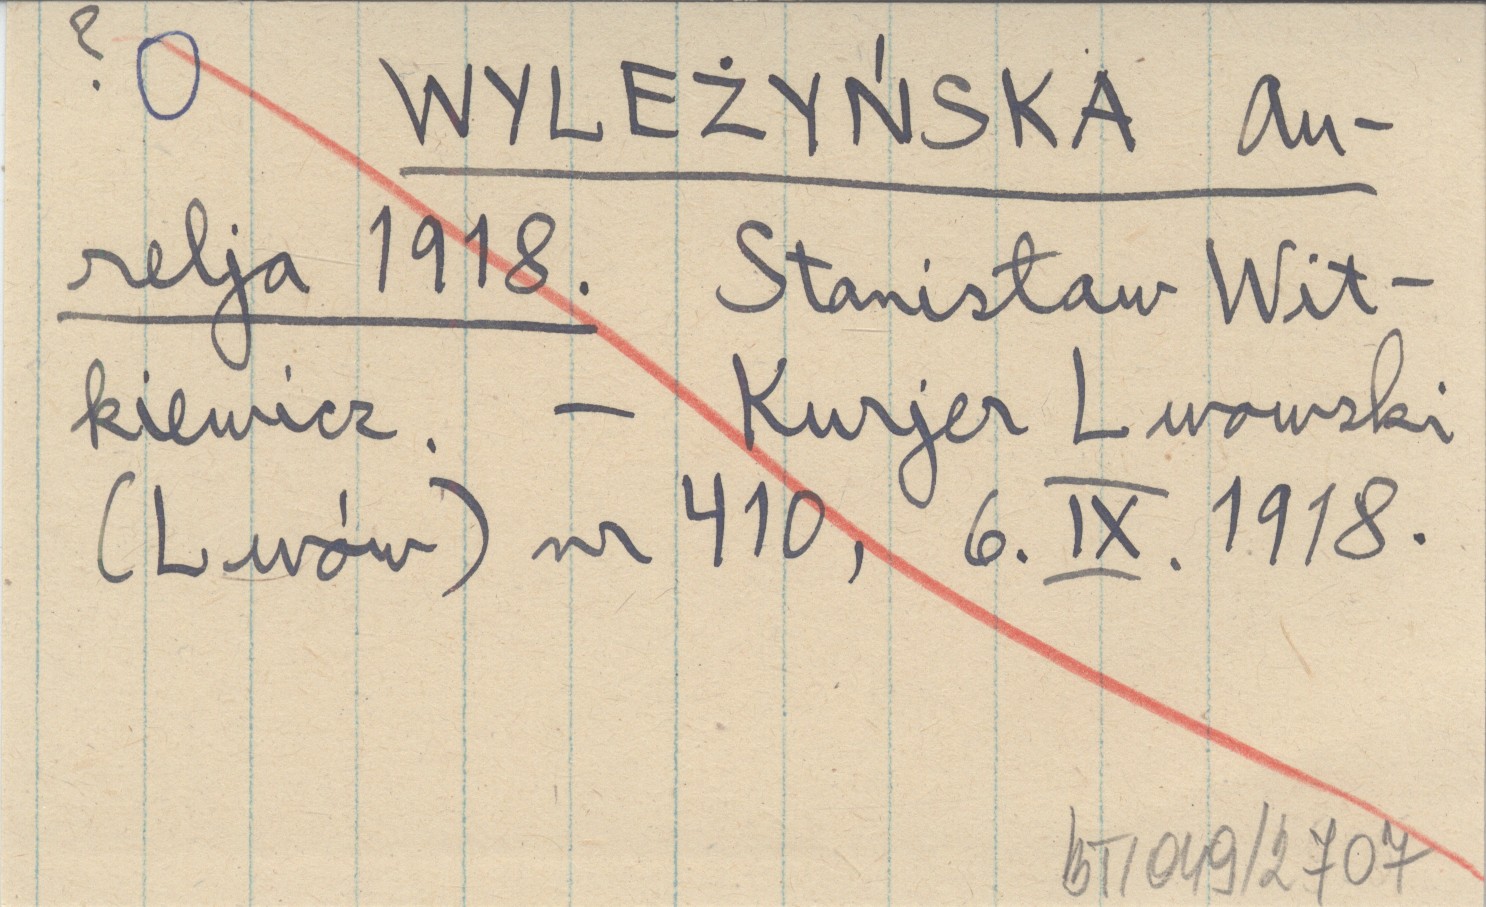 ? O
WYLEŻYŃSKA Au-
relja 1918. Stanisław Wit-
kiewicz. — Kurjer Lwowski
(Lwów) nr 410, 6. IX. 1918.
BT/049/2707